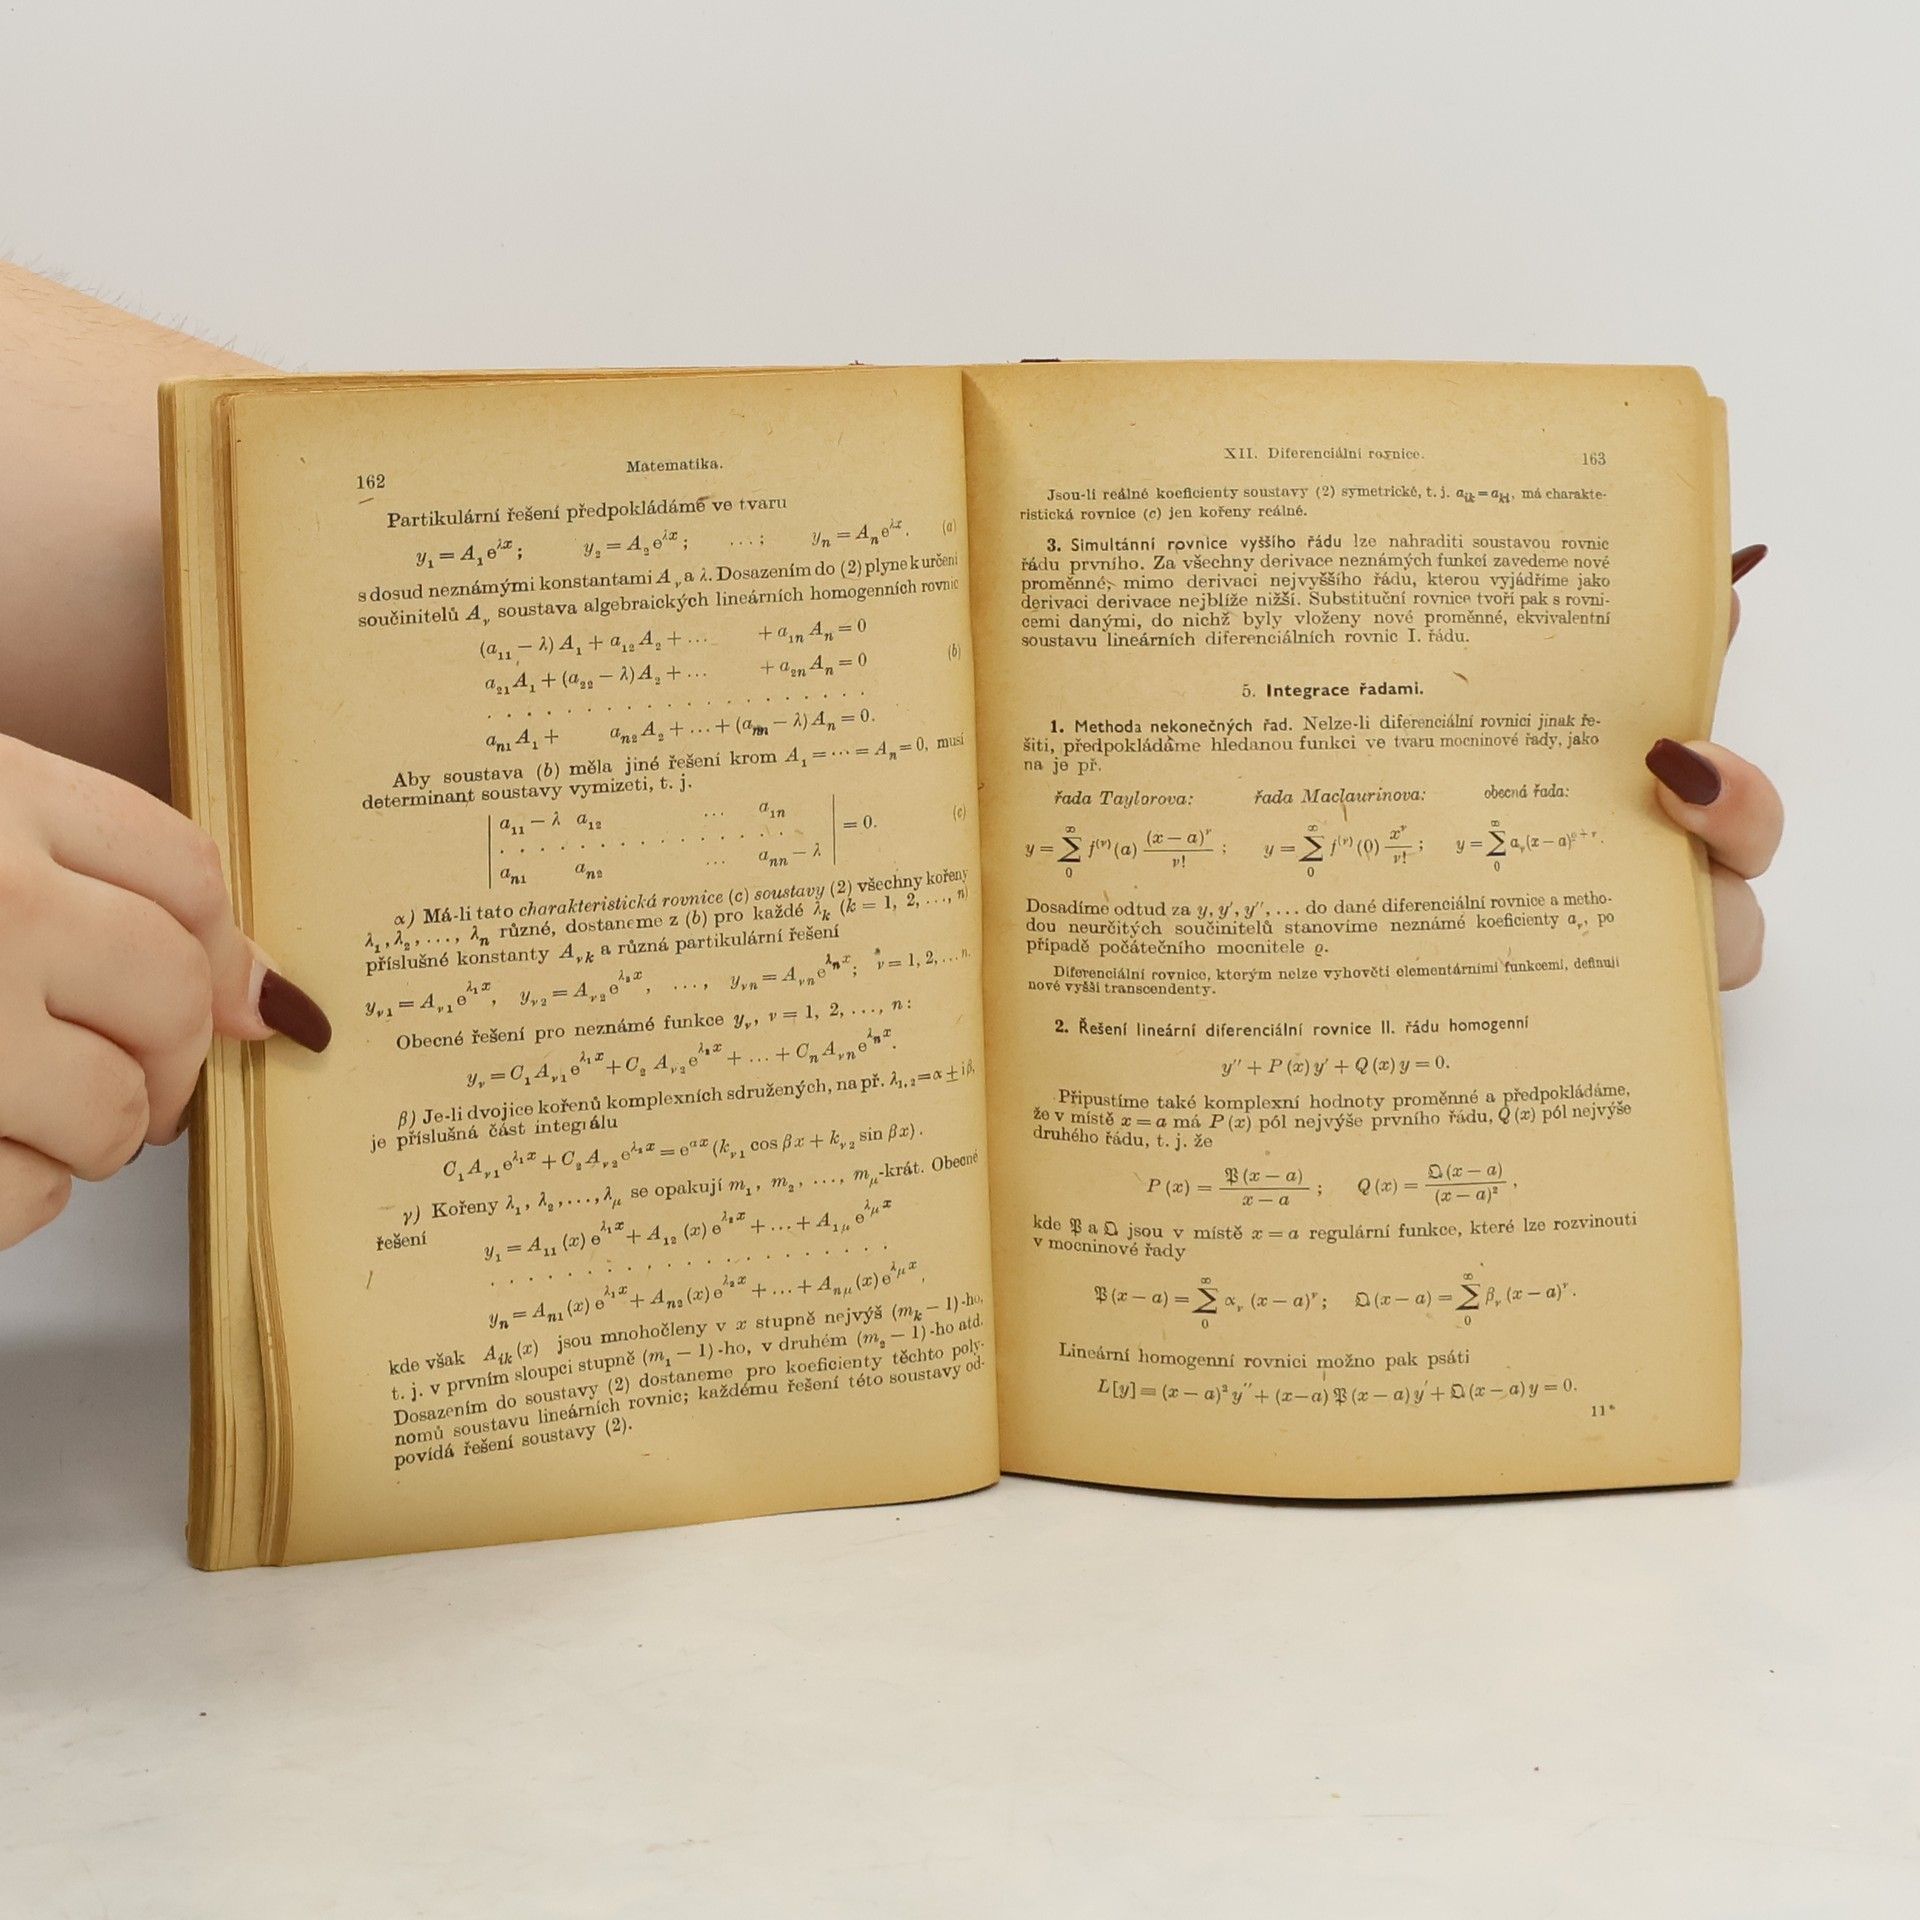 162
Matematika.
Partikulární řešení předpokládáme ve tvaru
y₁ = A₁e^{λx}; y₂ = A₂e^{λx}; ...; yₙ = Aₙe^{λx}. (a)
s dosud neznámými konstantami A_ν a λ. Dosazením do (2) plyne k určení
součinitelů A_ν soustava algebraických lineárních homogenních rovnic
(a₁₁ − λ) A₁ + a₁₂ A₂ + ... + a₁ₙ Aₙ = 0
a₂₁ A₁ + (a₂₂ − λ) A₂ + ... + a₂ₙ Aₙ = 0 (b)
. . . . . . . . . . . . . . . .
aₙ₁ A₁ + aₙ₂ A₂ + ... + (aₙₙ − λ) Aₙ = 0.
Aby soustava (b) měla jiné řešení krom A₁ = ··· = Aₙ = 0, musí
determinant soustavy vymizeti, t. j.
| a₁₁ − λ a₁₂ ... a₁ₙ |
| . . . . . . . . . . . . | = 0. (c)
| aₙ₁ aₙ₂ ... aₙₙ − λ |
α) Má-li tato charakteristická rovnice (c) soustavy (2) všechny kořeny
λ₁, λ₂, ..., λₙ různé, dostaneme z (b) pro každé λₖ (k = 1, 2, ..., n)
příslušné konstanty A_{νk} a různá partikulární řešení
y_{ν1} = A_{ν1}e^{λ₁x}, y_{ν2} = A_{ν2}e^{λ₂x}, ..., y_{νn} = A_{νn}e^{λₙx}; ν = 1, 2, ... n.
Obecné řešení pro neznámé funkce y_ν, ν = 1, 2, ..., n:
y_ν = C₁A_{ν1}e^{λ₁x} + C₂A_{ν2}e^{λ₂x} + ... + CₙA_{νn}e^{λₙx}.
β) Je-li dvojice kořenů komplexních sdružených, na př. λ₁,₂ = α ± iβ,
je příslušná část integrálu
C₁A_{ν1}e^{λ₁x} + C₂A_{ν2}e^{λ₂x} = e^{αx} (k_{ν1} cos βx + k_{ν2} sin βx).
γ) Kořeny λ₁, λ₂, ..., λ_μ se opakují m₁, m₂, ..., m_μ-krát. Obecné
řešení
y₁ = A₁₁ (x) e^{λ₁x} + A₁₂ (x) e^{λ₂x} + ... + A_{1μ} e^{λ_μx}
. . . . . . . . . . . . . . . .
yₙ = Aₙ₁ (x) e^{λ₁x} + Aₙ₂ (x) e^{λ₂x} + ... + A_{nμ} (x) e^{λ_μx},
kde však A_{ik} (x) jsou mnohočleny v x stupně nejvýš (mₖ − 1)-ho,
t. j. v prvním sloupci stupně (m₁ − 1)-ho, v druhém (m₂ − 1)-ho atd.
Dosazením do soustavy (2) dostaneme pro koeficienty těchto poly-
nomů soustavu lineárních rovnic; každému řešení této soustavy od-
povídá řešení soustavy (2).
XII. Diferenciální rovnice.
163
Jsou-li reálné koeficienty soustavy (2) symetrické, t. j. a_{ik} = a_{ki}, má charakte-
ristická rovnice (c) jen kořeny reálné.
3. Simultánní rovnice vyššího řádu lze nahraditi soustavou rovnic
řádu prvního. Za všechny derivace neznámých funkcí zavedeme nové
proměnné, mimo derivaci nejvyššího řádu, kterou vyjádříme jako
derivaci derivace nejblíže nižší. Substituční rovnice tvoří pak s rovni-
cemi danými, do nichž byly vloženy nové proměnné, ekvivalentní
soustavu lineárních diferenciálních rovnic I. řádu.
5. Integrace řadami.
1. Methoda nekonečných řad. Nelze-li diferenciální rovnici jinak ře-
šiti, předpokládáme hledanou funkci ve tvaru mocninové řady, jako
na je př.
řada Taylorova: řada Maclaurinova: obecná řada:
y = ∑₀^∞ f^{(ν)}(a) (x − a)^ν / ν! ; y = ∑₀^∞ f^{(ν)}(0) x^ν / ν! ; y = ∑₀^∞ a_ν(x − a)^{ϱ + ν}.
Dosadíme odtud za y, y′, y″, ... do dané diferenciální rovnice a metho-
dou neurčitých součinitelů stanovíme neznámé koeficienty a_ν, po
případě počátečního mocnitele ϱ.
Diferenciální rovnice, kterým nelze vyhověti elementárními funkcemi, definují
nové vyšší transcendenty.
2. Řešení lineární diferenciální rovnice II. řádu homogenní
y″ + P (x) y′ + Q (x) y = 0.
Připustíme také komplexní hodnoty proměnné a předpokládáme,
že v místě x = a má P (x) pól nejvýše prvního řádu, Q (x) pól nejvýše
druhého řádu, t. j. že
P (x) = 𝔓 (x − a) / x − a ; Q (x) = 𝔔 (x − a) / (x − a)² ,
kde 𝔓 a 𝔔 jsou v místě x = a regulární funkce, které lze rozvinouti
v mocninové řady
𝔓 (x − a) = ∑₀^∞ α_ν (x − a)^ν; 𝔔 (x − a) = ∑₀^∞ β_ν (x − a)^ν.
Lineární homogenní rovnici možno pak psáti
L [y] ≡ (x − a)² y″ + (x − a) 𝔓 (x − a) y′ + 𝔔 (x − a) y = 0.
11*